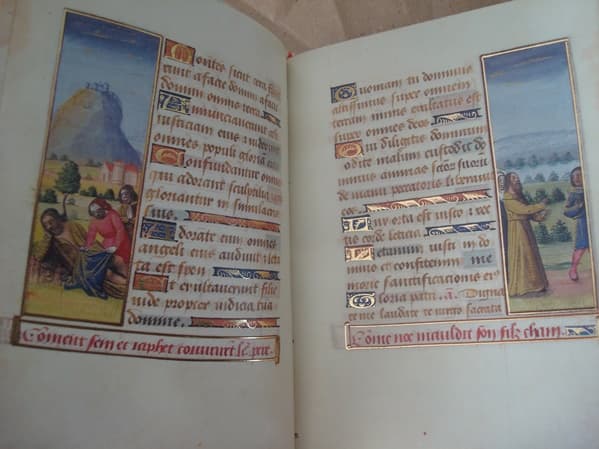 Montes sicut cera flux
erunt a facie domini a facie
domini omnis terra.
Annunciaverunt celi
iusticiam eius et viderunt
omnes populi gloria eius
Confundantur omnes
qui adorant sculptilia et qui
gloriantur in simulacris
suis.
Adorate eum omnes
angeli eius audivit et leta
ta est syon
Et exultaverunt filie
iude propter iudicia tua
domine.
Coment sem et iaphet couvrirēt le pere.
Quoniam tu dominus
altissimus super omnem
terram nimis exaltatus est
super omnes deos
Qui diligitis dominum
odite malum custodit do
minus animas sctōr̄ suoru
de manu peccatoris liberavit
eos.
Lux orta est iusto et rec
tis corde leticia
Letamini iusti in do
mino et confitemini me
morie sanctificacionis eius
Gloria patri. a. Digna
re me laudare te virgo sacrata
Cōme noe mauldit son filz cham.